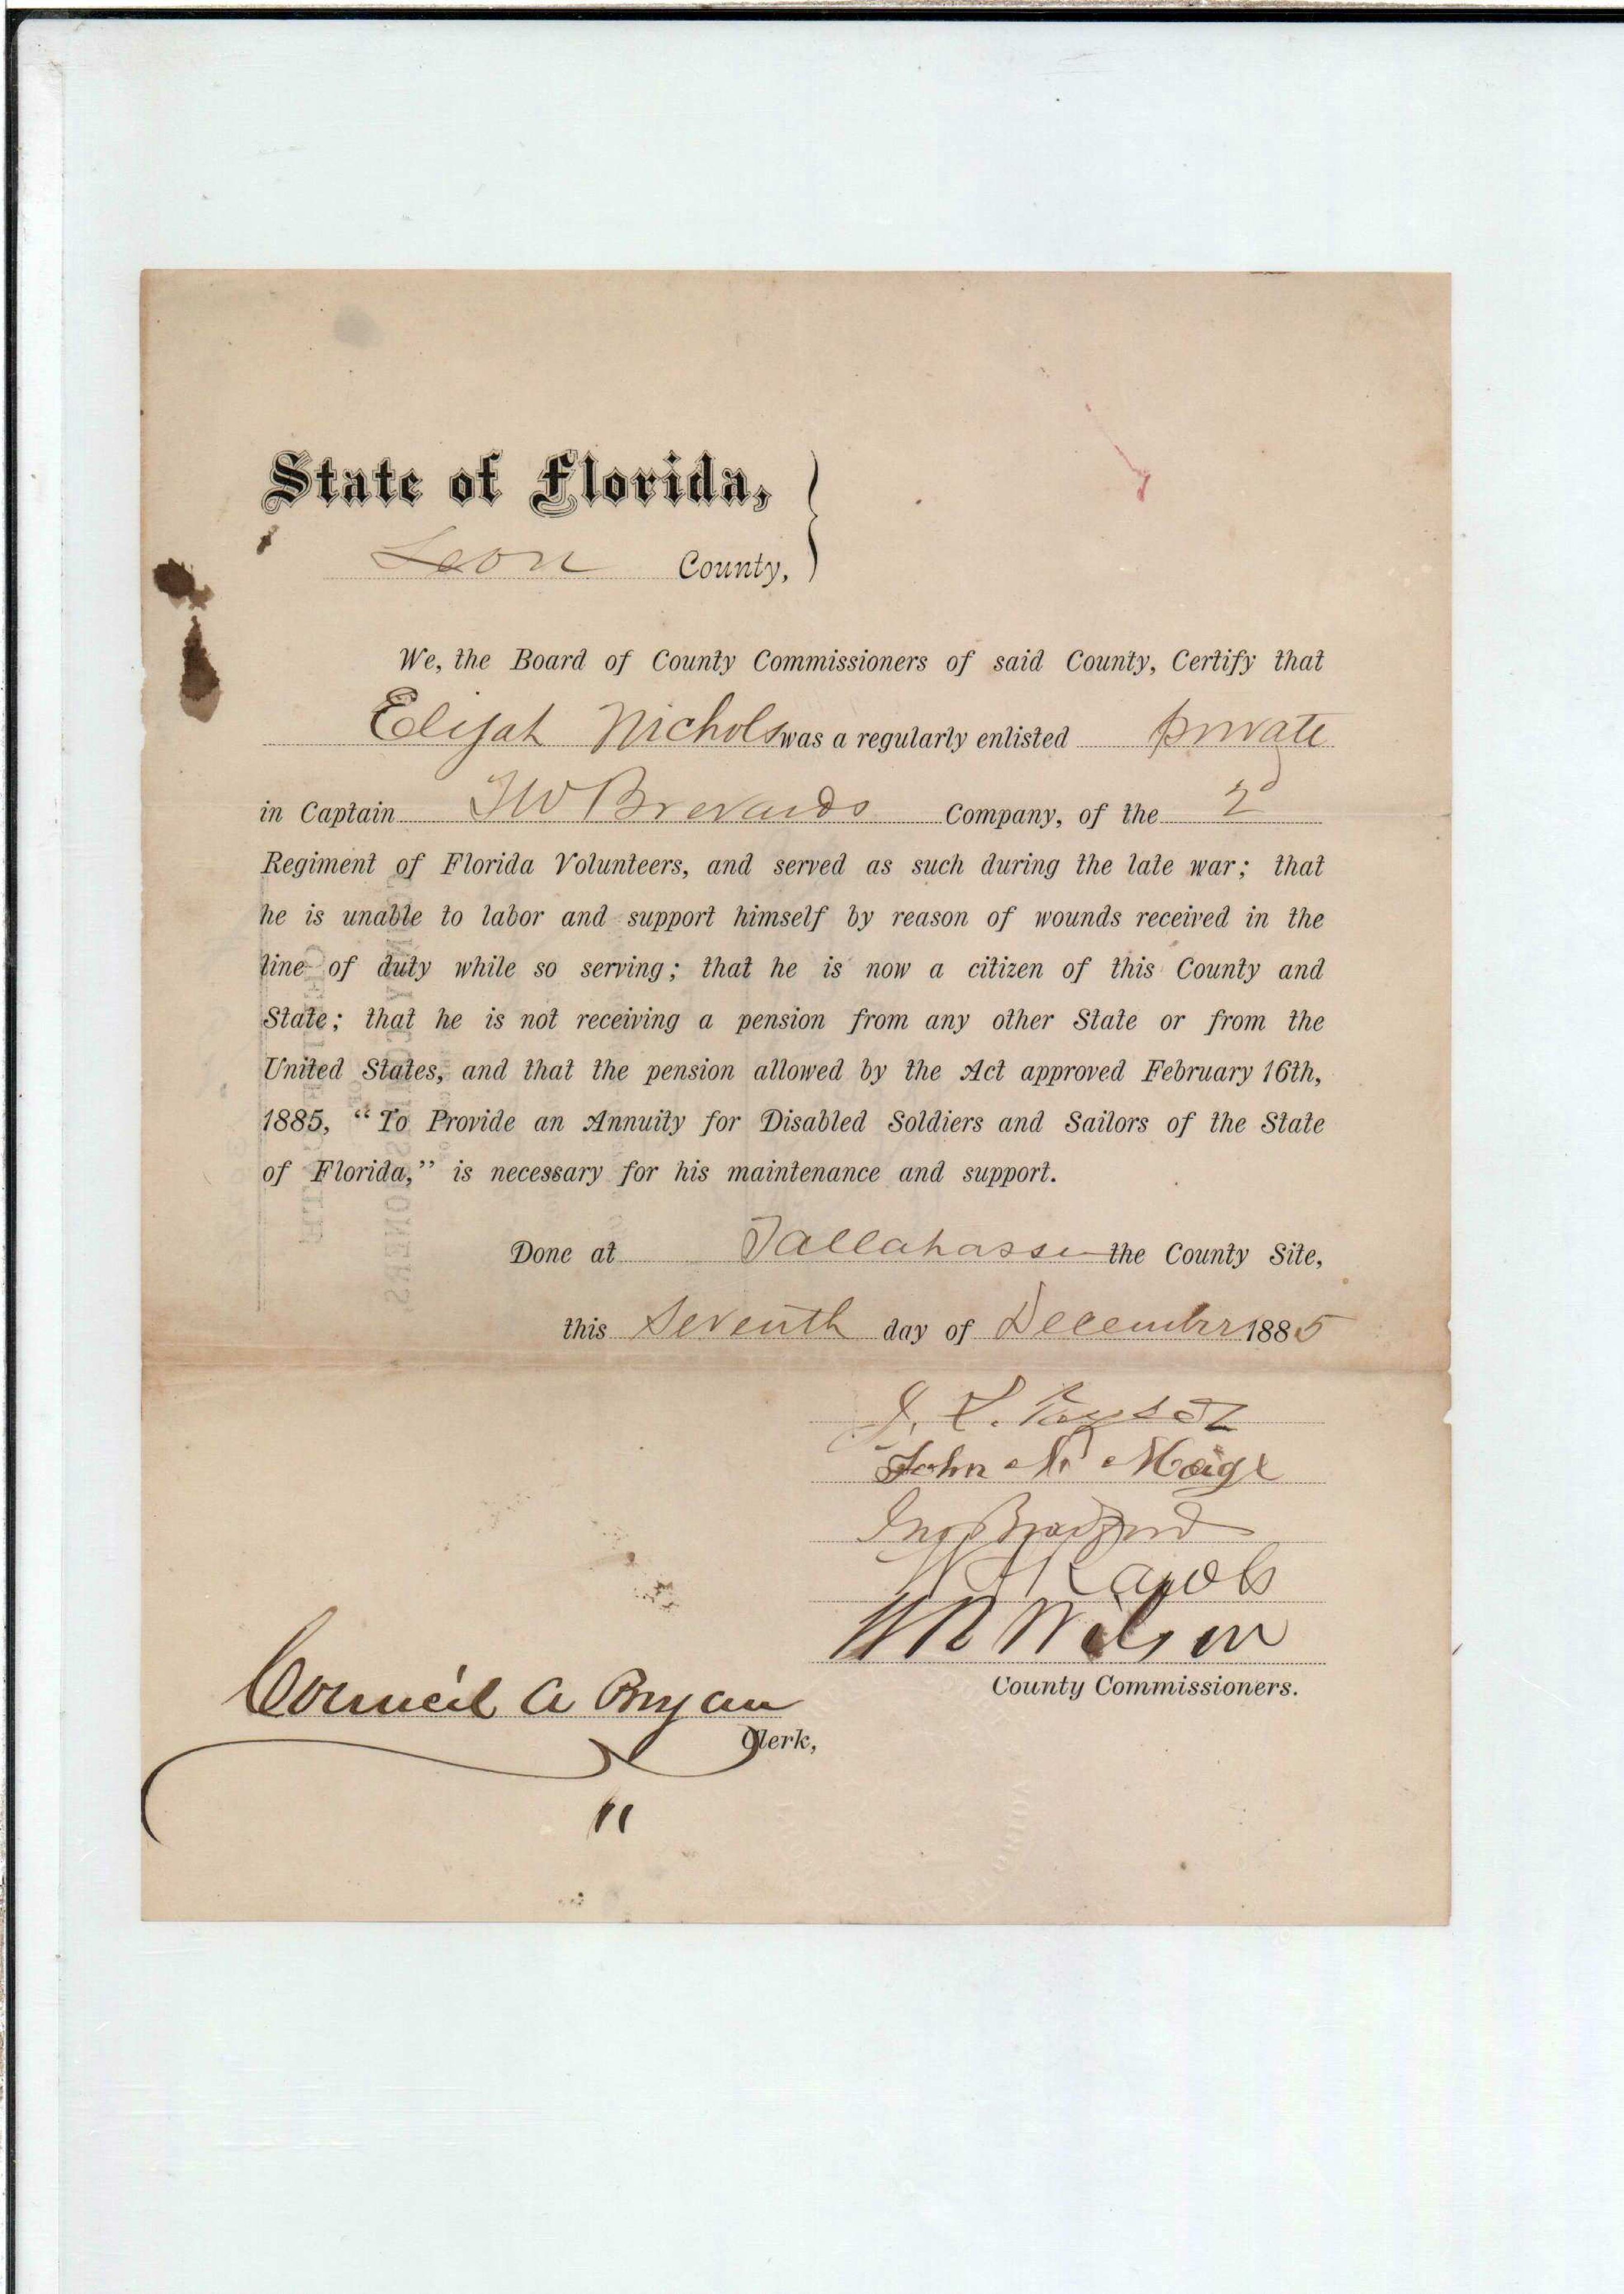 State of Florida,
Leon County,
We, the Board of County Commissioners of said County, Certify that
Elijah Nichols was a regularly enlisted private
in Captain TW Brevards Company, of the 2d
Regiment of Florida Volunteers, and served as such during the late war; that
he is unable to labor and support himself by reason of wounds received in the
line of duty while so serving; that he is now a citizen of this County and
State; that he is not receiving a pension from any other State or from the
United States, and that the pension allowed by the Act approved February 16th,
1885, “To Provide an Annuity for Disabled Soldiers and Sailors of the State
of Florida,” is necessary for his maintenance and support.
Done at Tallahassee the County Site,
this Seventh day of December 1885
John
Jno Bradford
W R Wilson
County Commissioners.
Council A Bryan
Clerk,